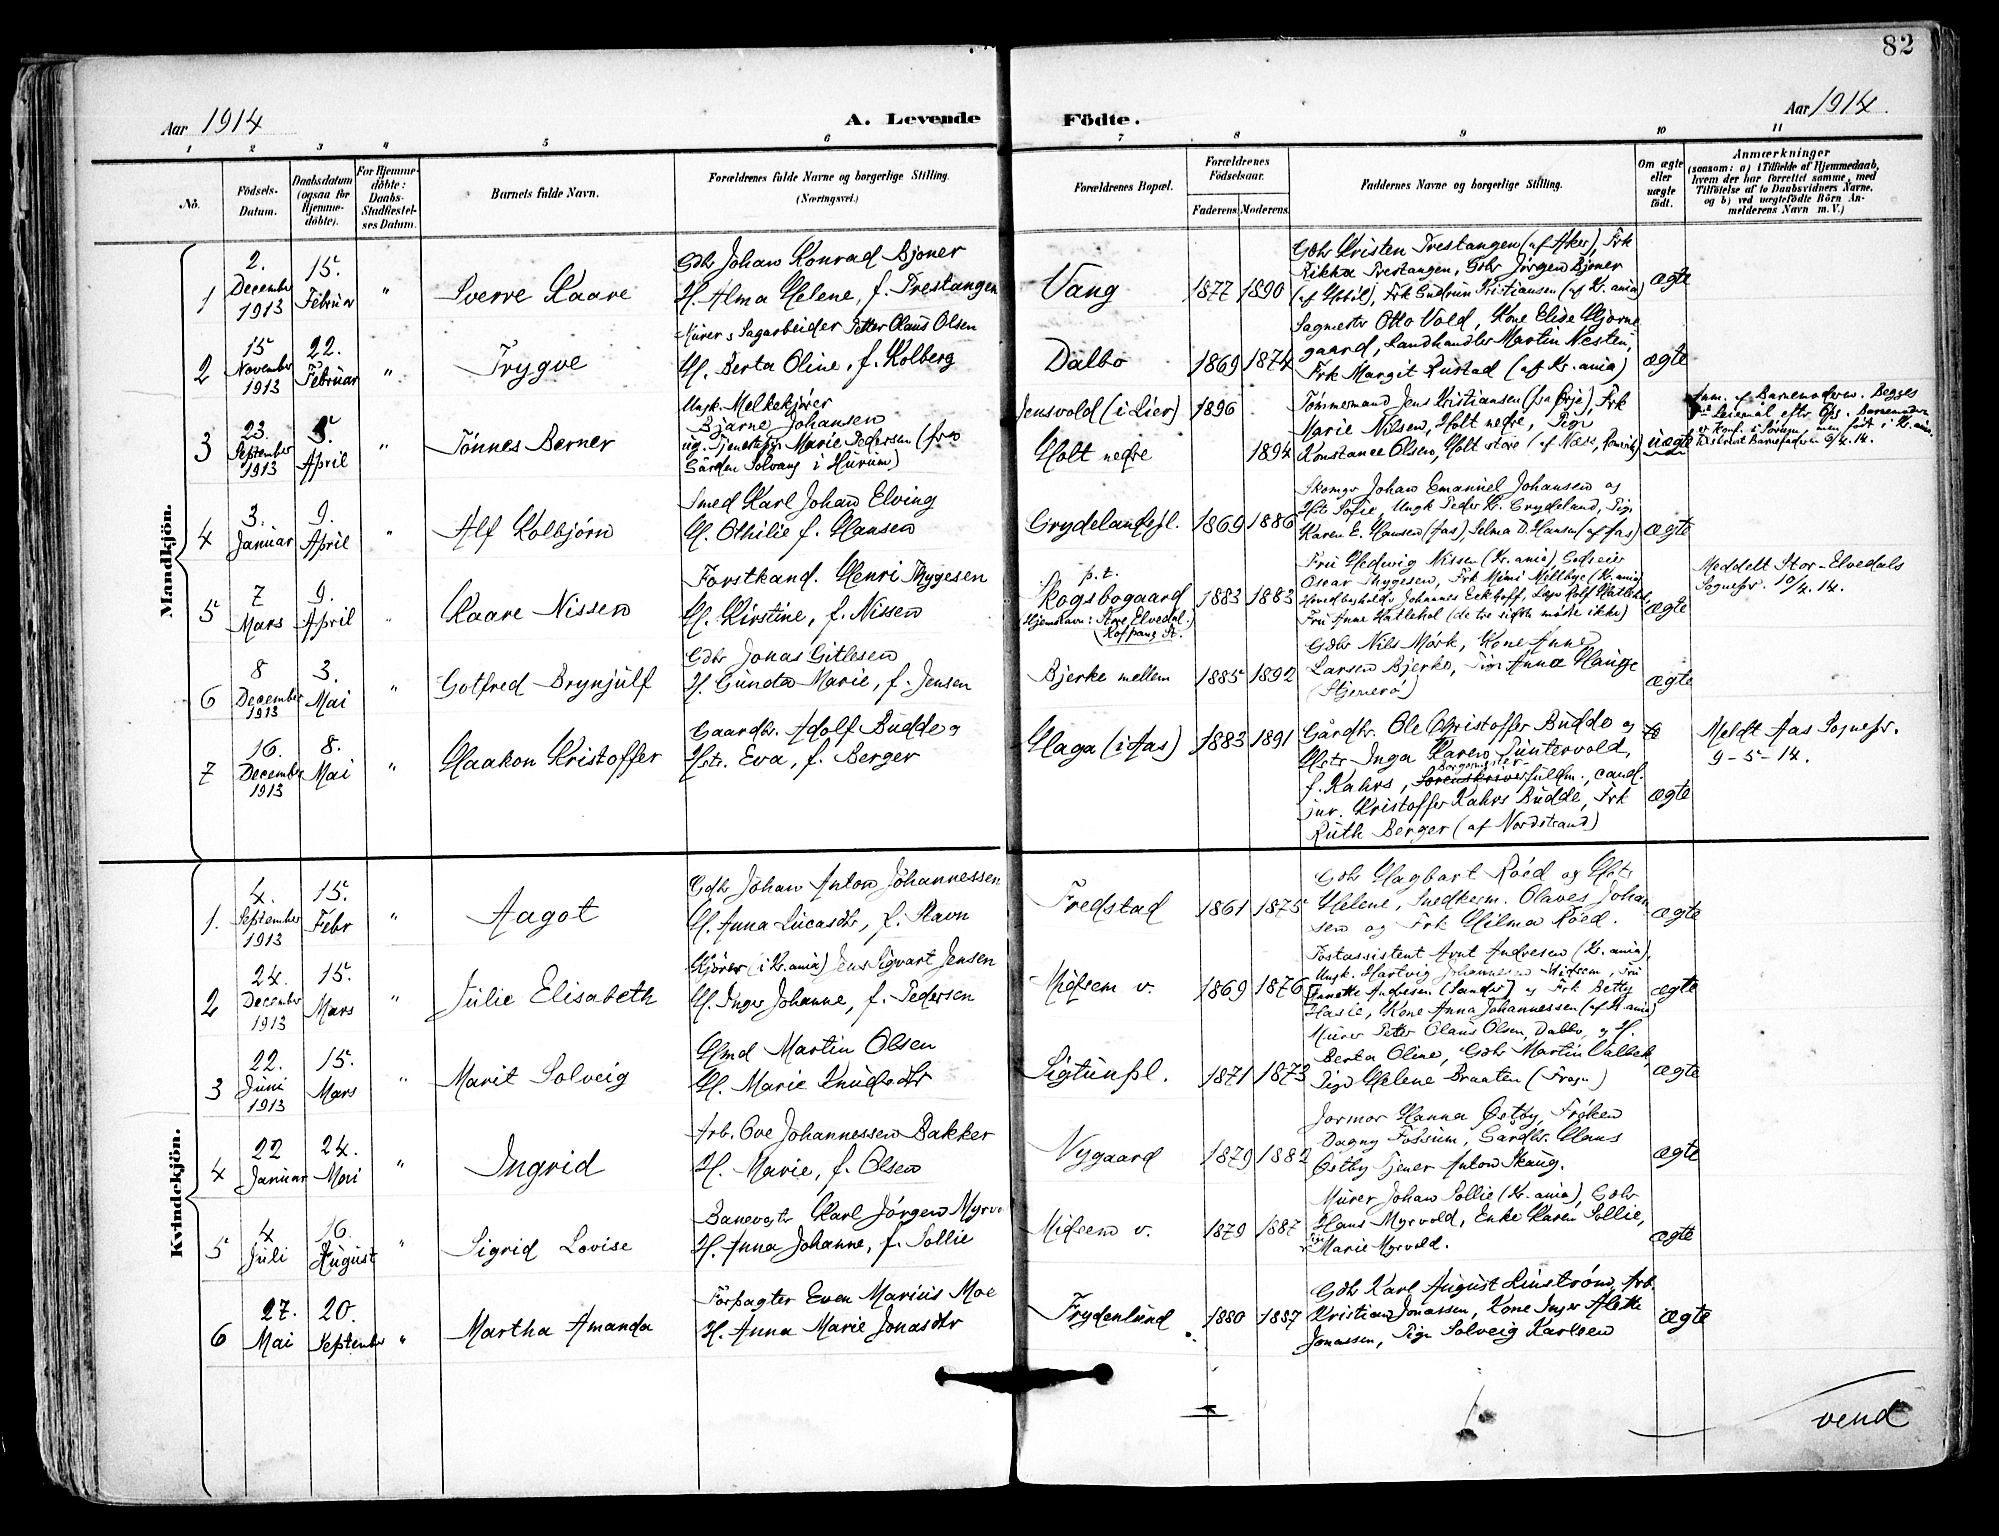 82
Aar 1914
A. Levende Födte.
Aar 1914
1 2 3 4 5 6 7 8 9 10 11
No.
Födsels-
Datum.
Daabsdatum
(ogsaa for
Hjemme-
døbte).
For Hjemme-
döbte:
Daabs-
Stadfæstel-
ses Datum.
Barnets fulde Navn.
Forældrenes fulde Navne og borgerlige Stilling.
(Næringsvei.)
Forældrenes Bopæl.
Forældrenes
Födselsaar.
Faderens. Moderens.
Faddernes Navne og borgerlige Stilling.
Om ægte
eller
uægte
födt.
Anmærkninger
(saasom: a) i Tilfælde af Hjemmedaab,
hvem der har forrettet samme, med
Tilföielse af to Daabsvidners Navne,
og b) ved uægtefödte Börn An-
melderens Navn m. V.)
Mandkjön.
1
2.
December
1913
15.
Februar
"
Sverre Kaare
Gdbr Johan Konrad Bjoner
H. Alma Helene, f. Prestangen
Vang
1877 1890
Gdbr Kristen Prestangen (af Aker), Frk
Rikka Prestangen, Gdbr Jørgen Bjoner
(af Hobøl), Frk Gudrun Kristiansen (af Kr.ania)
ægte
2
15
November
1913
22.
Februar
"
Trygve
Murer & Sagarbeider Petter Olaus Olsen
H. Berta Oline, f. Kolberg
Dalbo
1869 1874
Sagmestr Otto Vold, Kone Elise Hjorne
gaard, Landhandler Martin Nesten,
Frk Margit Rustad (af Kr.ania)
ægte
3
23.
September
1913
5.
April
"
Tønnes Berner
Ungk. Melkekjører
Bjarne Johansen
ug. Tjenestepi. Marie Pedersen (fra
Gården Solvang i Hurum)
Jensvold (i Lier)
Holt nedre
1896
1894
Tømmermand Jens Kristiansen (fra Ørje), Frk
Marie Nilsen, Holt nedre, Pige
Konstance Olsen, Holt store (af Næs, Romerike)
uægte
Anm. af Barnemoderen. Begges
Leiemål efter Opg. Barnemoderen
er Konf. i, men født i Kr.ania.
Barnefaderen 6/4.14.
4
3.
Januar
9.
April
"
Alf Kolbjørn
Smed Karl Johan Elving
H. Othilie f. Hansen
Grydelandspl.
1869 1886
Skomgr Johan Emanuel Johansen og
Hst Sofie, Ungk Peder Kr. Grydeland, Pige
Karen E. Hansen (Aas), Selma D. Hansen (af Aas)
ægte
5
7
Mars
9.
April
"
Kaare Nissen
Forstkand. Henri Thygesen
H. Kirstine, f. Nissen
p.t.
Skogsbogaard
Hjemstavn: Store Elvedal.
(Koppang St.
1883 1883
Fru Hedwig Nissen (Kr.ania) Godseier
Oscar Thygesen, Frk Mimi Mellbye (Kr.ania)
Johannes Eckhoff, Læge Rolf Hatlehol,
Fru Anne Hatlehol (de tre sidste mødte ikke)
ægte
Meddelt Stor-Elvedals
Sognepr. 10/4.14.
6
8
December
1913
3.
Mai
"
Gotfred Brynjulf
Gdbr Jonas Gitlesen
H. Gunda Marie, f. Jensen
Bjerke mellem
1885 1892
Gdbr Nils Mørk, Kone Anne
Larsen Bjerke, Pige Anna Hauge
(Stjenerø)
ægte
7
16.
December
1913
8.
Mai
"
Haakon Kristoffer
Gaardbr. Adolf Budde og
Hst. Eva, f. Berger
Haga (i Aas)
1883 1891
Gårdbr. Ole Christoffer Budde og
Hstr Inga Karen Suntervold,
f. Kahrs, Borgemester- Sorenskriverfuldm., cand.
jur. Kristoffer Kahrs Budde, Frk
Ruth Berger (af Nordstrand)
ægte
Meldt Aas Sognepr.
9-5-14.
Kvindekjön.
1.
4.
September
1913
15.
Febr
"
Aagot
Gdbr Johan Anton Johannessen
H. Anna Lucasdtr, f. Stavn
Fredstad
1861 1875
Gdbr Hagbart Røed og Hstr
Helene, Snedkerm. Olaves Johan
sen og Frk Hilma Røed.
ægte
2
24.
December
1913
15.
Mars
"
Julie Elisabeth
Kjører (i Kr.ania) Jens Sigvart Jensen
H. Inger Johanne, f. Pedersen
Midsem v.
1869 1876
Postassistent Arnt Andresen (Kr.ania),
Ungk. Hartvig Johannessen Midsem, Fru
Annette Andresen (Sander) og Frk Betty
Hasie, Kone Anna Johannessen (af Kr.ania)
ægte
3
22.
Juni
1913
15.
Mars
"
Marit Solveig
Hmd Martin Olsen
H. Marie Knudsdtr
Sigtunpl.
1871 1873
Murer Peter Olaus Olsen, Dalbo, og H.
Berta Oline, Gdbr Martin Valbek,
Pige Helene Braaten (Frogn)
ægte
4
22
Januar
24.
Mai
"
Ingrid
Arb. Ove Johannessen Bakker
H. Marie, f. Olsen
Nygaard
1879 1882
Jormor Hanna Østby, Frøken
Dagny Fossum, Gardbr. Hans
Østby Tjener Anton Skaug.
ægte
5
4
Juli
16.
August
"
Sigrid Lovise
Banevogtr Karl Jørgen Myrvo
H. Anna Johanne, f. Sollie
Midsem v.
1879 1887
Murer Johan Sollie (Kr.ania), Gdbr
Hans Myrvold, Enke Karen Sollie,
Marie Myrvold.
ægte
6
27.
Mai
20.
September
"
Martha Amanda
Forpagter Even Marius Moe
H. Anna Marie Jonasdtr
Frydenlund
1880 1887
Gdbr Karl August Linstrøm, Arb.
Kristian Jonassen, Kone Inger Alette
Jonassen, Pige Solveig Karlsen
ægte
vend